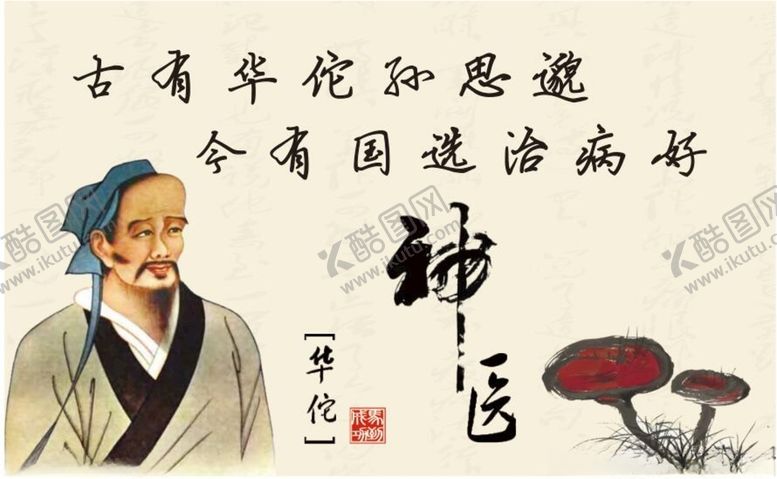 古有华佗孙思邈
今有国选治病好
神医
[华佗]
马到成功
酷图网
www.ikutu.com
酷图网
www.ikutu.com
酷图网
www.ikutu.com